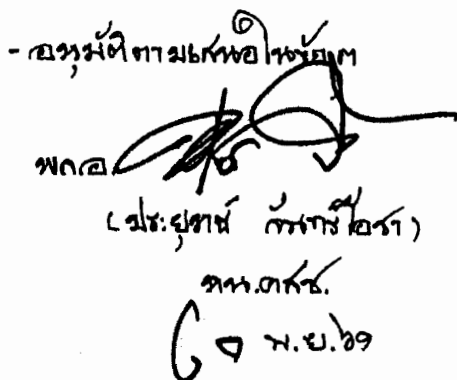 - อนุมัติตามเสนอในข้อ ๓
พล.อ.
(ประยุทธ์ จันทร์โอชา)
หน.คสช.
๒๐ พ.ย.๖๑